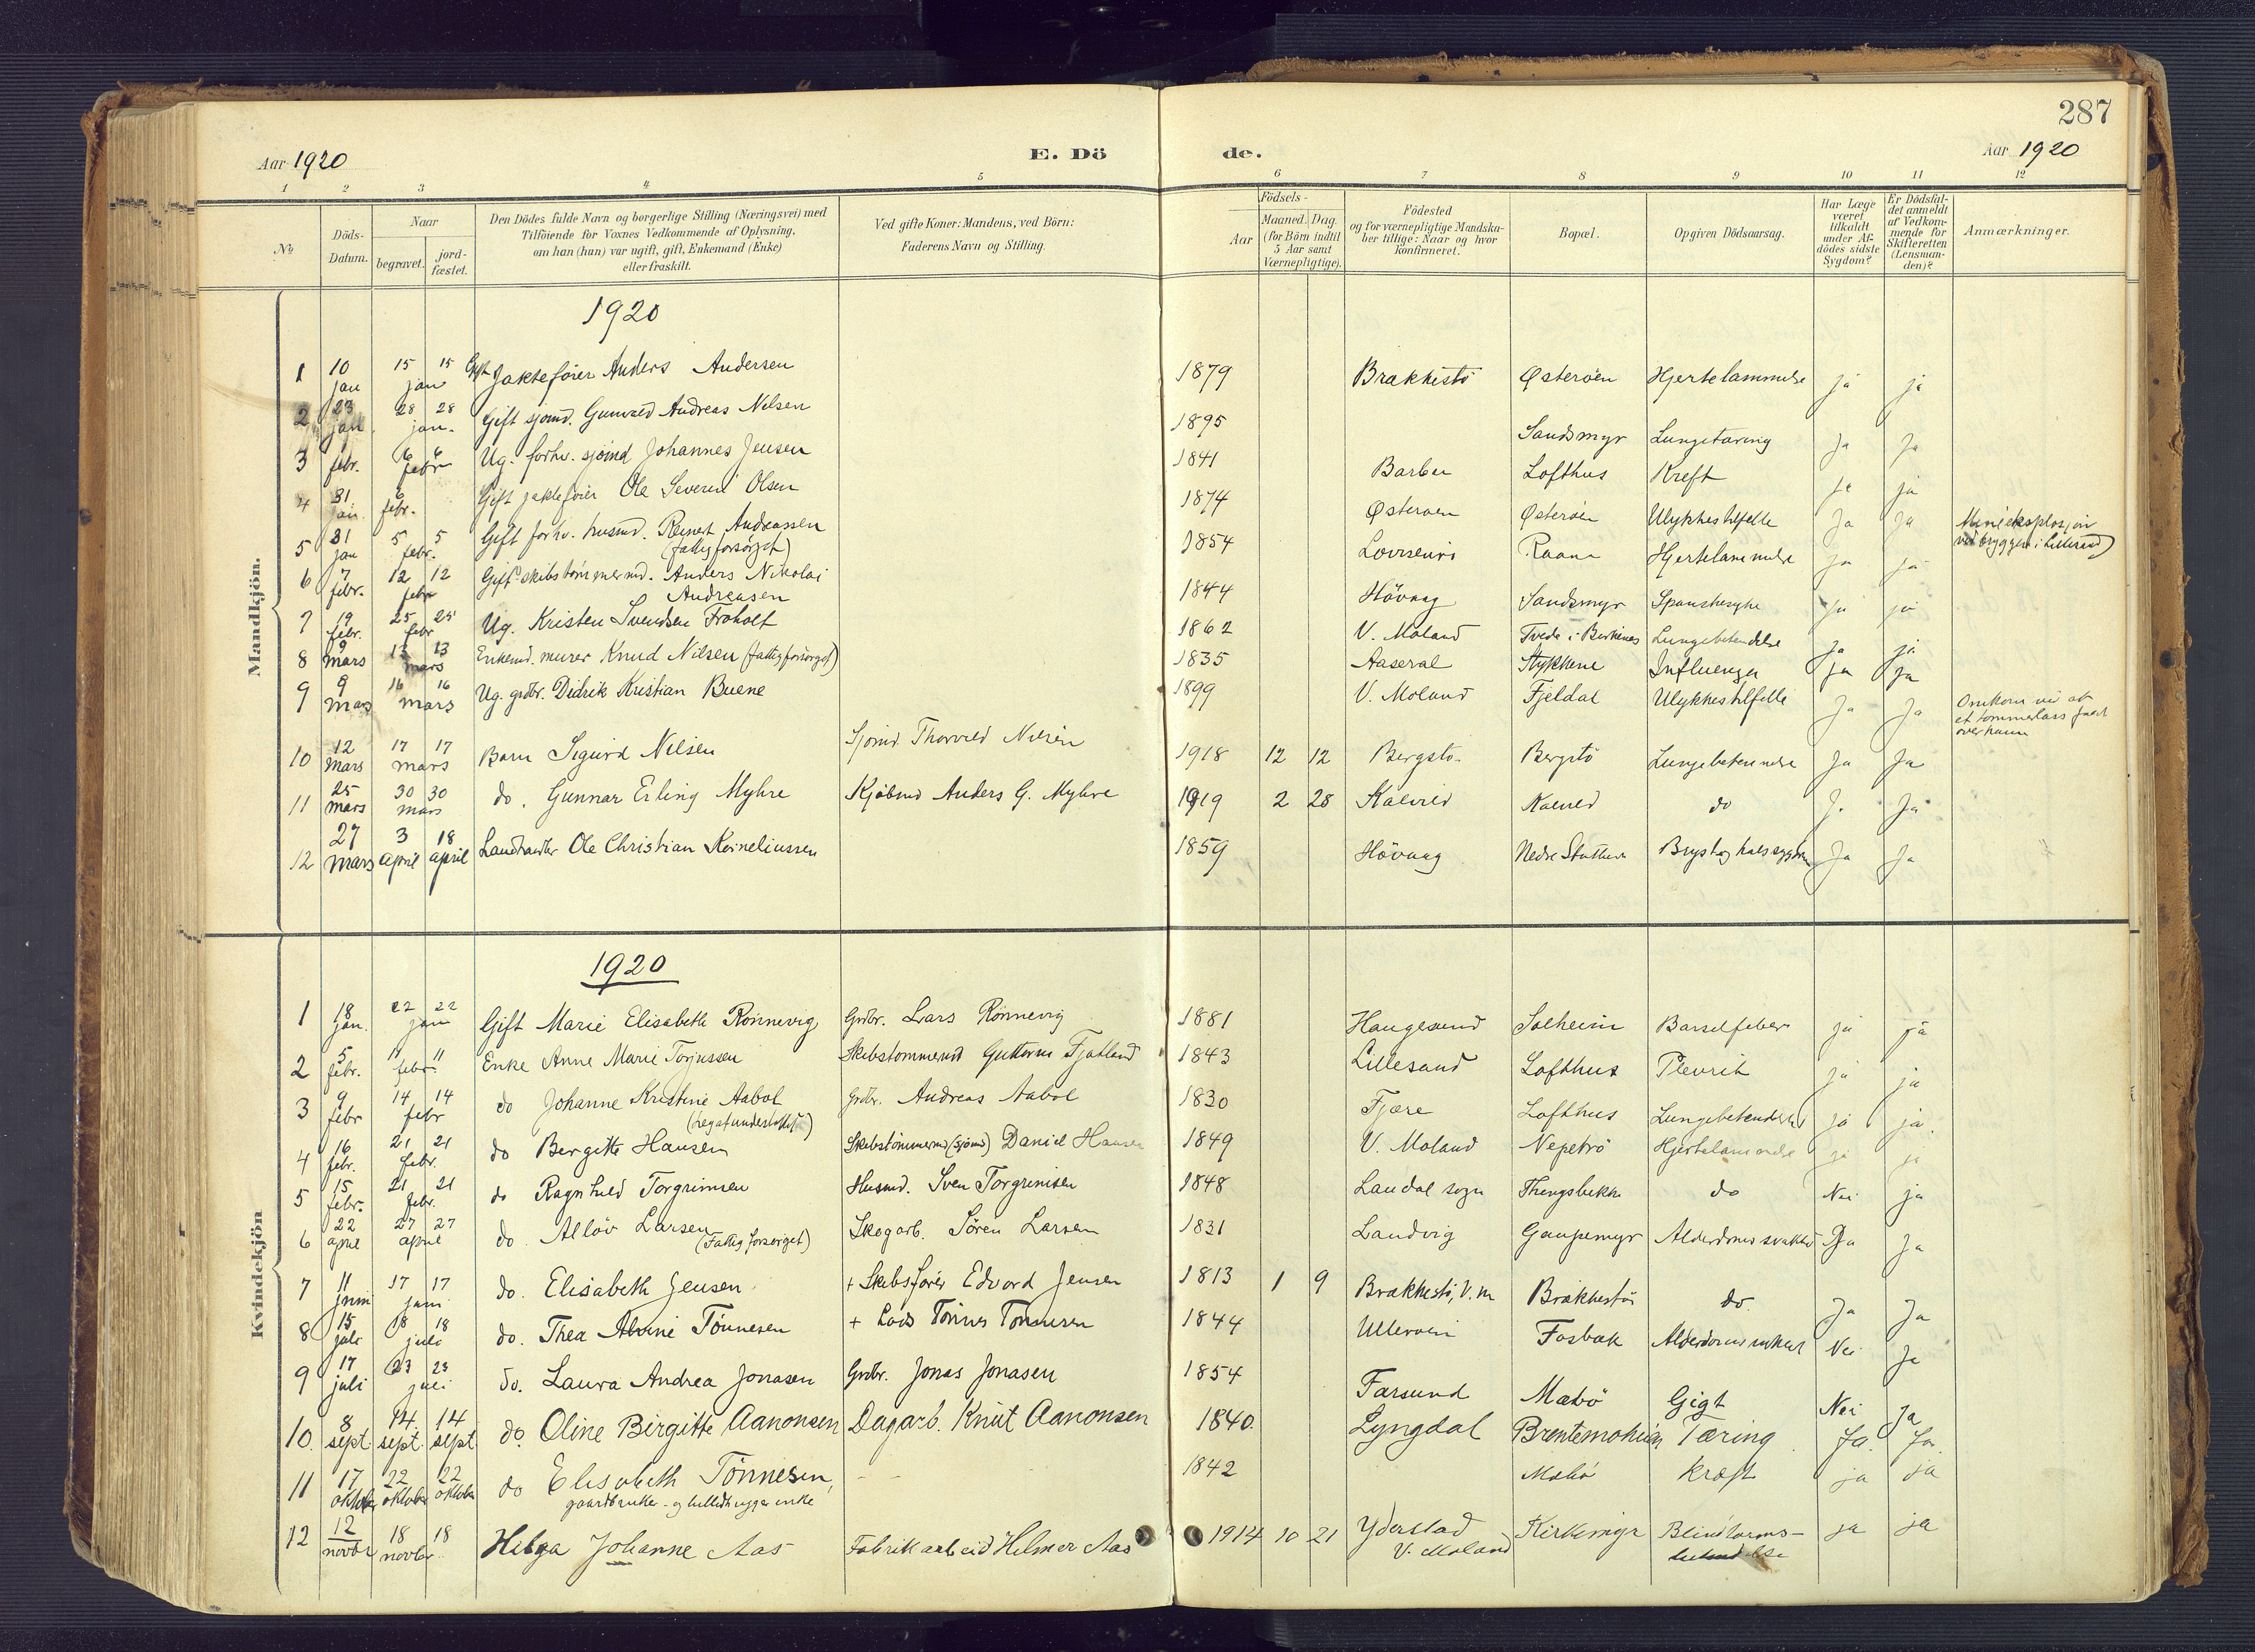 287
Aar 1920 E. Dö de. Aar 1920
1 2 3 4 5 6 7 8 9 10 11 12
No. Döds-Datum. Naar begravet. jord-fæstet. Den Dödes fulde Navn og borgerlige Stilling (Næringsvei) med Tilföiende for Voxnes Vedkommende af Oplysning, om han (hun) var ugift, gift, Enkemand (Enke) eller fraskilt. Ved gifte Koner: Mandens, ved Börn: Faderens Navn og Stilling. Födsels- Aar Maaned. Dag. (for Börn indtil 5 Aar samt Værnepligtige). Födested og for værnepligtige Mandskaber tillige: Naar og hvor konfirmeret. Bopæl. Opgiven Dödsaarsag. Har Læge været tilkaldt under Afdödes sidste Sygdom? Er Dödsfaldet anmeldt af Vedkommende for Skifteretten (Lensmanden)? Anmærkninger.
Mandkjön.
1920
1 10 jan 15 15 jan Gift Jaktefører Anders Andersen 1879 Brækkestø Østerøen Hjertelammelse ja ja
2 23 jan 28 28 jan. Gift sjømd. Gunvald Andreas Nilsen 1895 Sandsmyr Lungetæring Ja Ja
3 febr. 6 6 febr Ug. forhv. sjømd Johannes Jensen 1841 Barbu Lofthus Kreft ja ja
4 31 jan. 6 febr. Gift jaktefører Ole Severin Olsen 1874 Østerøen Østerøen Ulykkestilfelle Ja Ja Mineeksplosjon ved bryggen i Lillesand
5 31 jan 5 5 febr. Gift forhv. husmd. Reinert Andreassen (fattigforsørget) 1854 Hjertelammelse ja ja
6 7 febr. 12 12 febr Gift skibstømmermd. Anders Nikolai Andreasen 1844 Høvaag Sandsmyr Spanskesyke ja ja
7 19 febr. 25 25 febr Ug. Kristen Svendsen Froholt 1862 V. Moland Tvede i Birkenes Lungebetendelse Ja ja
8 9 mars 13 13 mars Enkemd. murer Knud Nilsen (fattigforsørget) 1835 Aaseral Stykkene Influenza ja ja
9 9 mars 16 16 mars Ug. grdbr. Didrik Kristian Buene 1899 V. Moland Fjeldal Ulykkestilfelle Ja Ja Omkom ved at et tømmerlass faldt over ham
10 12 mars 17 17 mars Barn Sigurd Nilsen Sjømd. Thorvald Nilsen 1918 12 12 Bergstø Bergstø Lungebetennelse Ja Ja
11 25 mars 30 30 mars do. Gunnar Erling Myhre Kjøbmd Anders G. Myhre 1919 2 28 Kalvild Kalvild do Ja Ja
12 27 mars 3 april 18 april Landhandler Ole Christian Korneliussen 1859 Høvaag Nedre Bryst og halssygdom Ja Ja
Kvindekjön
1920
1 18 jan. 22 22 jan Gift Marie Elisabeth Rønnevig Grdbr. Lars Rønnevig 1881 Haugesund Solheim Barselfeber ja ja
2 5 febr. 11 11 febr. Enke Anne Marie Torjussen Skibstømmermd Guttorm Fjatland 1843 Lillesand Lofthus Plevrit ja ja
3 9 febr 14 14 febr do Johanne Kristine Aabøl (Legatunderstøttet) Grdbr. Andreas Aabøl 1830 Fjære Lofthus Lungebetendelse ja ja.
4 16 febr. 21 21 febr. do Bergitte Hansen Skibstømmermd (sjømd) Daniel Hansen 1849 V. Moland Nepetrø Hjertelammelse ja ja
5 15 febr. 21 21 febr. do Ragnhild Torgrimsen Husmd. Sven Torgrimsen 1848 Laudal sogn Thingsbekk do Nei ja
6 22 april 27 27 april do. Alløv Larsen (Fattigforsørget) Skogarb. Søren Larsen 1831 Landvig Gaupemyr Alderdomssvakhet Ja Ja
7 11 juni 17 17 juni do. Elisabeth Jensen + Skibsfører Edvard Jensen 1813 1 9 Brækkestø, V.m Brækkestø do. Ja Ja
8 15 juli 18 18 juli do. Thea Alvine Tønnesen + Lods Tønnes Tønnesen 1844 Ulleröen Fosbæk Nei Ja
9 17 juli 23 23 juli do. Laura Andrea Jonasen Grdbr. Jonas Jonasen 1854 Farsund Mæbø Gigt Nei Ja
10. 8 sept. 14. sept. 14 sept. do. Oline Birgitte Aanonsen Dagarb. Knut Aanonsen 1840. Lyngdal Brentemohein Tæring Ja. Ja.
11 17 oktober 22 oktober 22 oktober do Elisabeth Tønnesen, gaardbruker- og enke — 1842 Mæbø kræft ja ja
12 12 novbr 18 18 novbr. Helga Johanne Aas Fabrikarbeid Helmer Aas 1914 10 21 Yderstad V. Moland Kirkemyr Blindtarms- betendelse ja ja